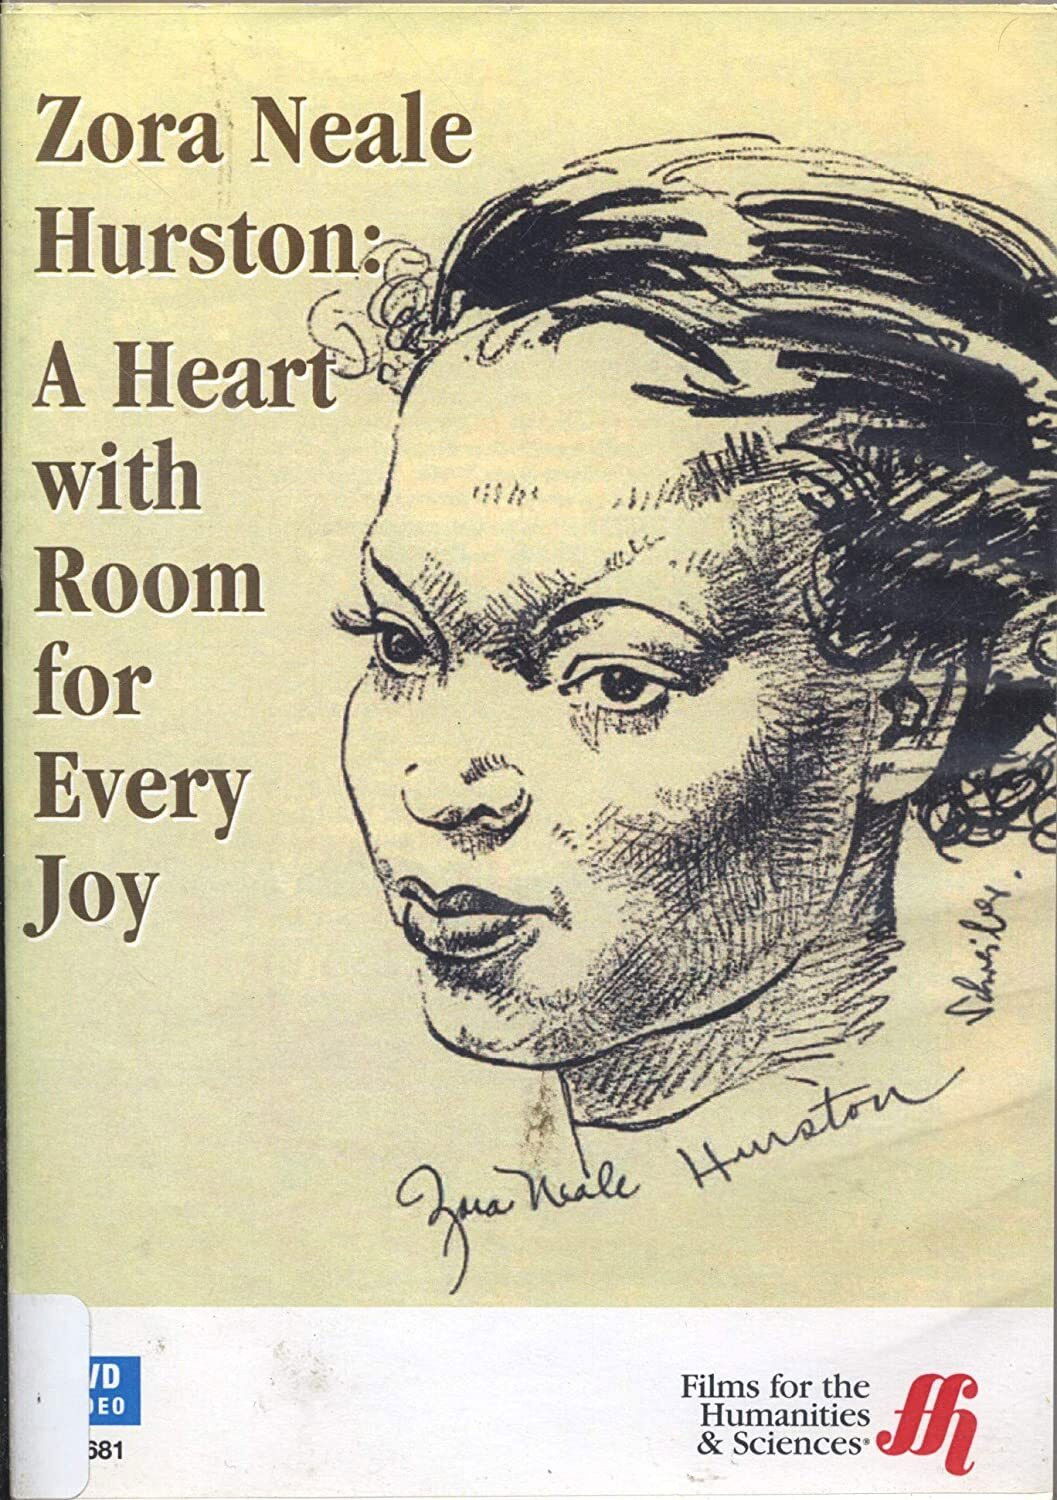 Zora Neale
Hurston:
A Heart
with
Room
for
Every
Joy
Schreiber.
Zora Neale Hurston
VD
DEO
681
Films for the
Humanities
& Sciences®
ffh